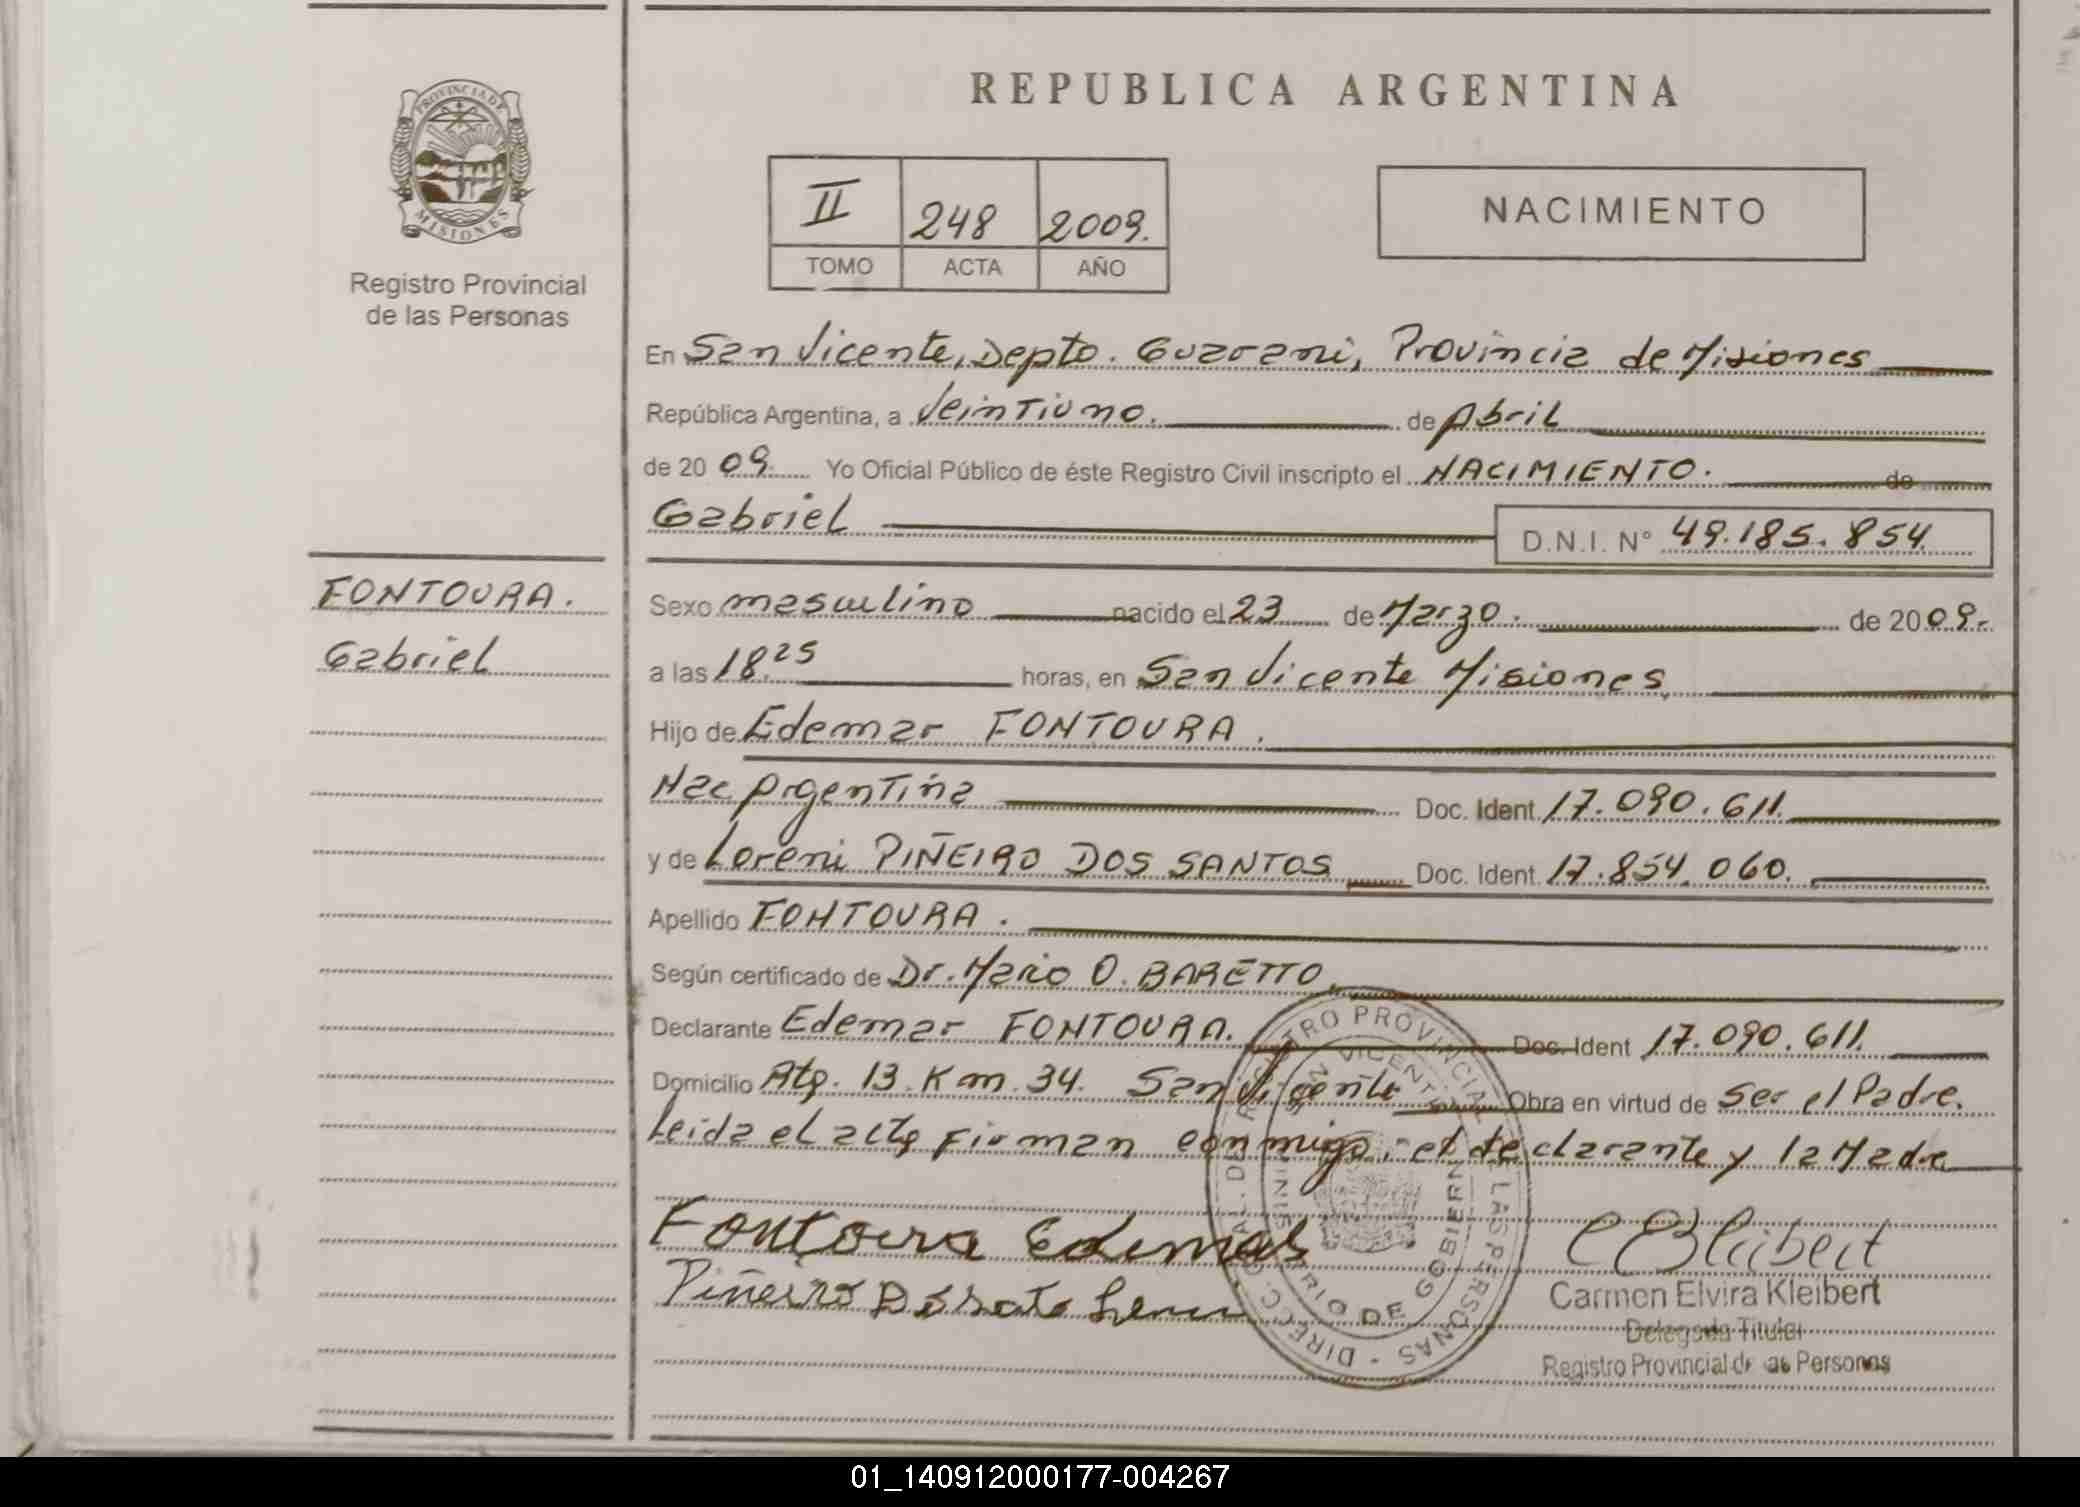 PROVINCIA DE
MISIONES
Registro Provincial
de las Personas
FONTOURA.
Gabriel
REPUBLICA ARGENTINA
II 248 2009.
TOMO ACTA AÑO
NACIMIENTO
En San Vicente, Depto. Guarani, Provincia de Misiones
República Argentina, a Veintiuno. de Abril
de 2009. Yo Oficial Público de éste Registro Civil inscripto el NACIMIENTO. de
Gabriel D.N.I. N° 49.185.854
Sexo masculino nacido el 23 de Marzo. de 2009.-
a las 18.25 horas, en San Vicente Misiones
Hijo de Edemar FONTOURA.
Nac Argentina Doc. Ident. 17.090.611.
y de Loreni PIÑEIRO DOS SANTOS Doc. Ident. 17.854.060.
Apellido FONTOURA.
Según certificado de Dr. Mario O. BARETTO.
Declarante Edemar FONTOURA. Doc. Ident 17.090.611.
Domicilio Atg. 13. Km. 34. San Vicente Obra en virtud de Ser el Padre.
Leida el acta Firman conmigo: el declarante y la Madre
Fontoura Edemar
Piñeiro
DIRECC. GRAL. DEL REGISTRO PROVINCIAL DE LAS PERSONAS -
SAN VICENTE
MINISTERIO DE GOBIERNO
Carmen Elvira Kleibert
Delegada Titular
Registro Provincial de las Personas
01_140912000177-004267